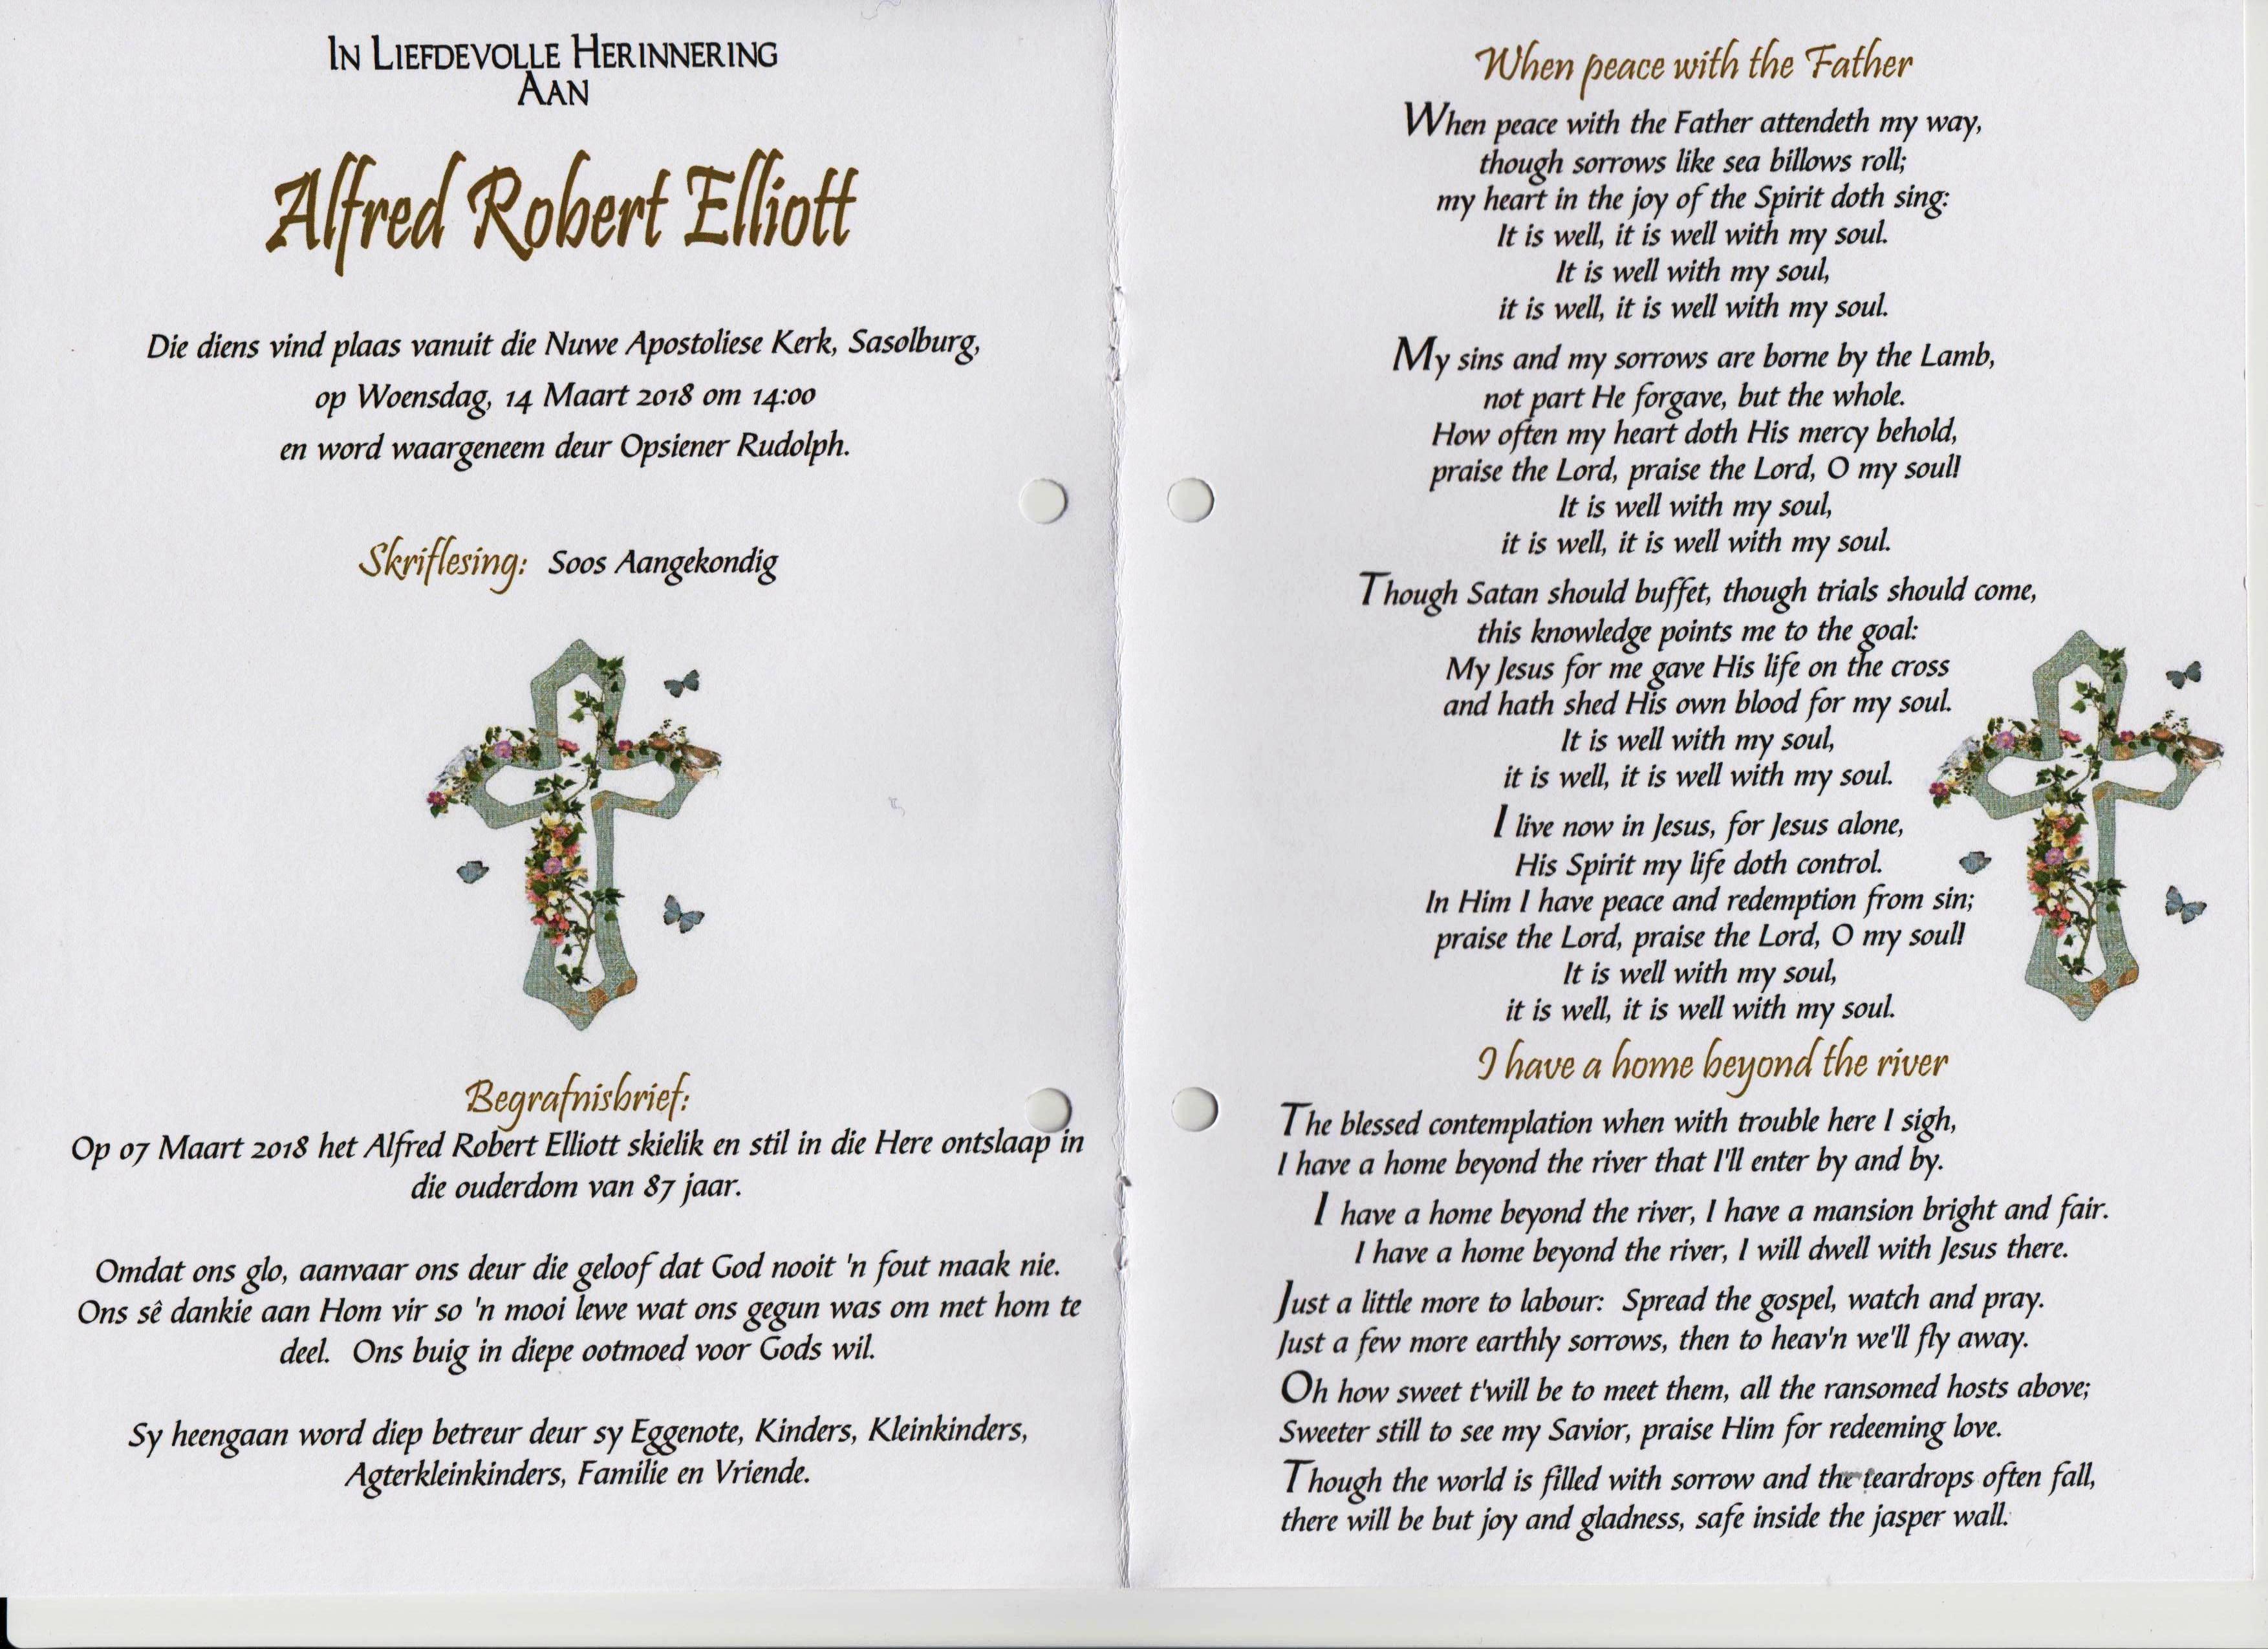 In Liefdevolle Herinnering
Aan
Alfred Robert Elliott
Die diens vind plaas vanuit die Nuwe Apostoliese Kerk, Sasolburg,
op Woensdag, 14 Maart 2018 om 14:00
en word waargeneem deur Opsiener Rudolph.
Skriflesing: Soos Aangekondig
Begrafnisbrief:
Op 07 Maart 2018 het Alfred Robert Elliott skielik en stil in die Here ontslaap in
die ouderdom van 87 jaar.
Omdat ons glo, aanvaar ons deur die geloof dat God nooit 'n fout maak nie.
Ons sê dankie aan Hom vir so 'n mooi lewe wat ons gegun was om met hom te
deel. Ons buig in diepe ootmoed voor Gods wil.
Sy heengaan word diep betreur deur sy Eggenote, Kinders, Kleinkinders,
Agterkleinkinders, Familie en Vriende.
When peace with the Father
When peace with the Father attendeth my way,
though sorrows like sea billows roll;
my heart in the joy of the Spirit doth sing:
It is well, it is well with my soul.
It is well with my soul,
it is well, it is well with my soul.
My sins and my sorrows are borne by the Lamb,
not part He forgave, but the whole.
How often my heart doth His mercy behold,
praise the Lord, praise the Lord, O my soul!
It is well with my soul,
it is well, it is well with my soul.
Though Satan should buffet, though trials should come,
this knowledge points me to the goal:
My Jesus for me gave His life on the cross
and hath shed His own blood for my soul.
It is well with my soul,
it is well, it is well with my soul.
I live now in Jesus, for Jesus alone,
His Spirit my life doth control.
In Him I have peace and redemption from sin;
praise the Lord, praise the Lord, O my soul!
It is well with my soul,
it is well, it is well with my soul.
I have a home beyond the river
The blessed contemplation when with trouble here I sigh,
I have a home beyond the river that I'll enter by and by.
I have a home beyond the river, I have a mansion bright and fair.
I have a home beyond the river, I will dwell with Jesus there.
Just a little more to labour: Spread the gospel, watch and pray.
Just a few more earthly sorrows, then to heav'n we'll fly away.
Oh how sweet t'will be to meet them, all the ransomed hosts above;
Sweeter still to see my Savior, praise Him for redeeming love.
Though the world is filled with sorrow and the teardrops often fall,
there will be but joy and gladness, safe inside the jasper wall.